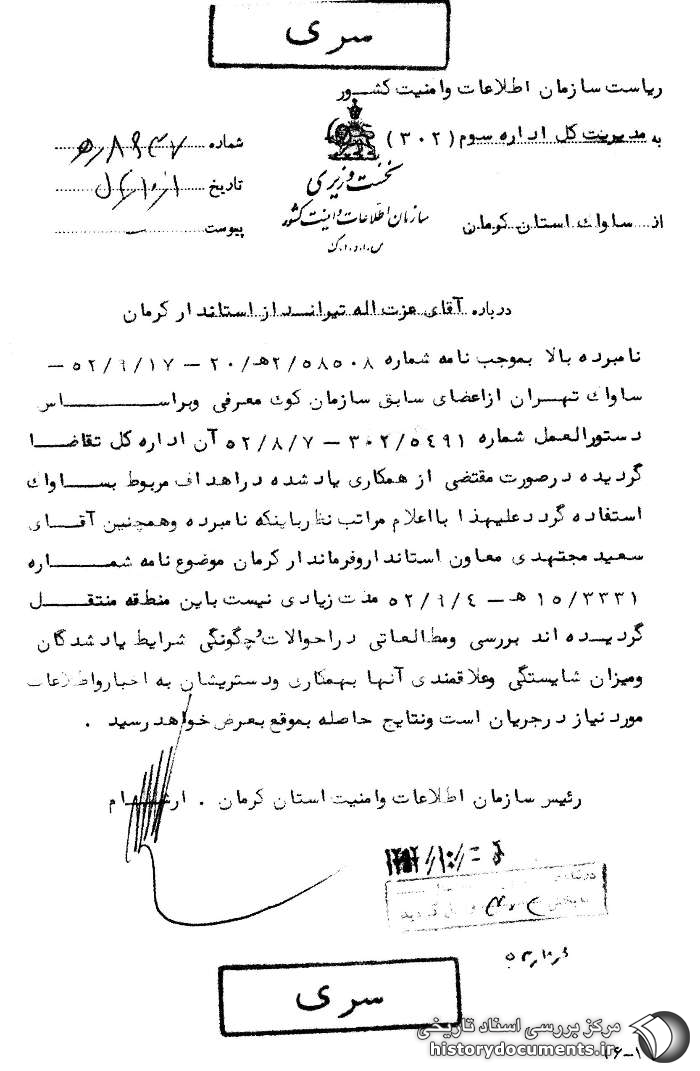 سری
ریاست سازمان اطلاعات وامنیت کشور
به مدیریت کل اداره سوم (۳۰۲)
نخست وزیری
سازمان اطلاعات وامنیت کشور
س.ا.و.ا.ک
از ساواك استان کرمان
شماره
تاریخ
پیوست
درباره آقای عزت اله تیرانداز استاندار کرمان
نامبرده بالا بموجب نامه شماره ۲/۵۸۵۰۸هـ/۲۰ – ۵۲/۹/۱۷ –
ساواك تهران ازاعضای سابق سازمان کوك معرفی وبراساس
دستورالعمل شماره ۳۰۲/۵۴۹۱ – ۵۲/۸/۷ آن اداره کل تقاضا
گردیده درصورت مقتضی از همکاری یادشده دراهداف مربوط بساواك
استفاده گردد علیهذا بااعلام مراتب نظرباینکه نامبرده وهمچنین آقای
سعید مجتهدی معاون استانداروفرماندار کرمان موضوع نامه شماره
۱۵/۳۳۳۱ هـ – ۵۲/۹/۴ مدت زیادی نیست باین منطقه منتقل
گردیده اند بررسی ومطالعاتی دراحوالات وچگونگی شرایط یادشدگان
ومیزان شایستگی وعلاقمندی آنها بهمکاری ودستریشان به اخبارواطلاعات
مورد نیاز درجریان است ونتایج حاصله بموقع بعرض خواهد رسید .
رئیس سازمان اطلاعات وامنیت استان کرمان . آرشام
سری
مرکز بررسی اسناد تاریخی
historydocuments.ir